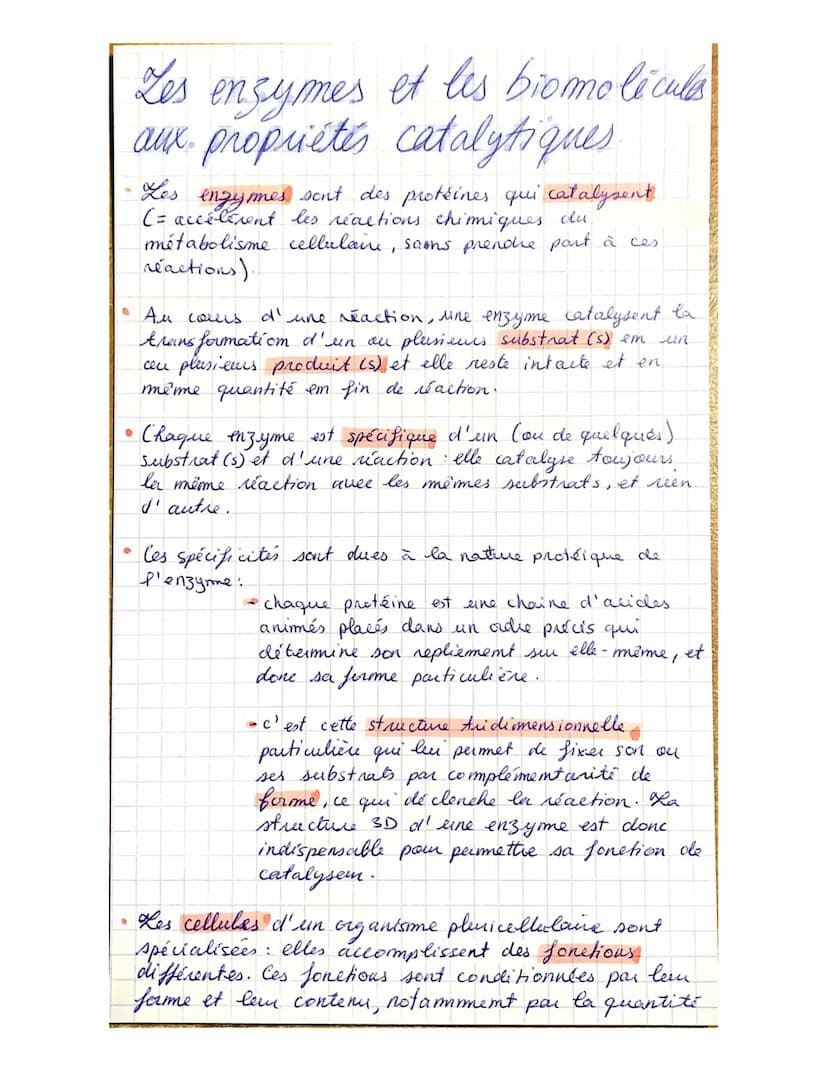 Les enzymes et les biomolécules
aux propriétés catalytiques
• Les enzymes sont des protéines qui catalysent
(= accélèrent les réactions chimiques du
métabolisme cellulaire, sans prendre part à ces
réactions).
• Au cours d'une réaction, une enzyme catalysent la
transformation d'un ou plusieurs substrat (s) en un
ou plusieurs produit (s) et elle reste intacte et en
même quantité em fin de réaction.
• Chaque enzyme est spécifique d'un (ou de quelques)
substrat (s) et d'une réaction : elle catalyse toujours
la même réaction avec les mêmes substrats, et rien
d'autre.
• Ces spécificités sont dues à la nature protéique de
l'enzyme :
- chaque protéine est une chaine d'acides
animés placés dans un ordre précis qui
détermine son repliement sur elle-même, et
donc sa forme particulière.
- c'est cette structure tridimensionnelle
particulière qui lui permet de fixer son ou
ses substrats par complémentarité de
forme, ce qui déclenche la réaction. La
structure 3D d'une enzyme est donc
indispensable pour permettre sa fonction de
catalyseur.
• Les cellules d'un organisme pluricellulaire sont
spécialisées : elles accomplissent des fonctions
différentes. Ces fonctions sont conditionnées par leur
forme et leur contenu, notammemt par la quantité